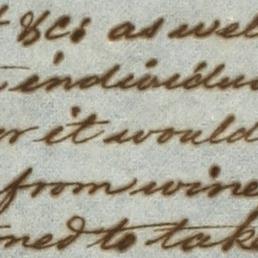 &c: as wel
individu
r it would
from wine
ned to take